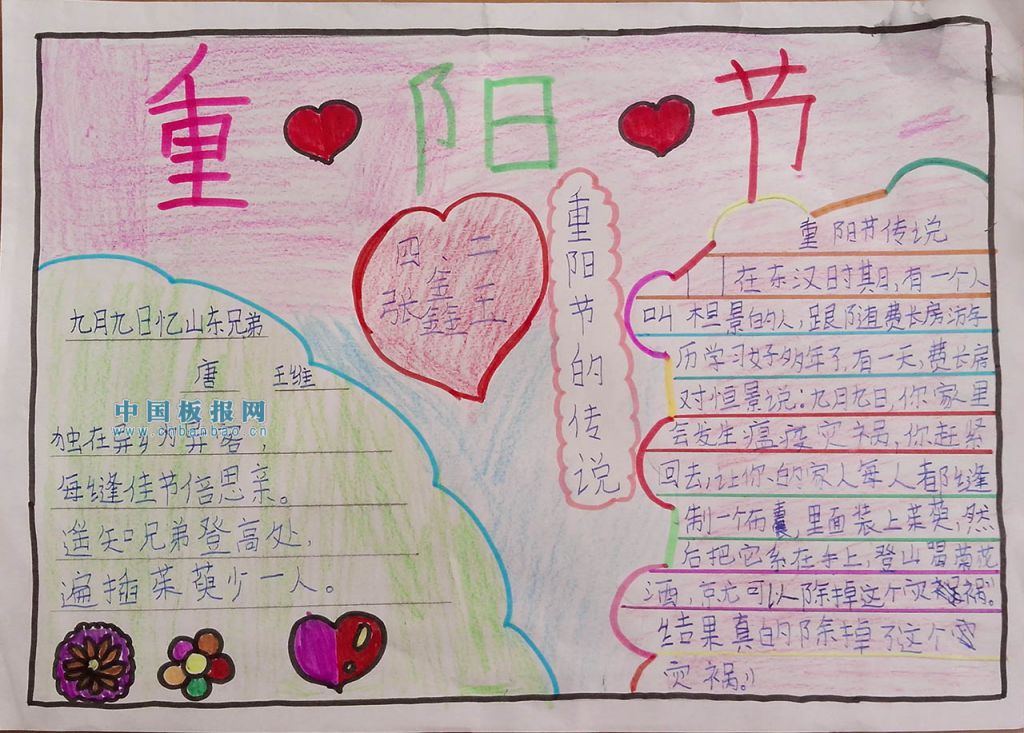 重阳节
四、二
张鑫王
重阳节的传说
九月九日忆山东兄弟
唐 王维
中国板报网
www.chbanbao.cn
独在异乡为异客,
每缝佳节倍思亲。
遥知兄弟登高处,
遍插茱萸少一人。
重阳节传说
在东汉时其日,有一个人
叫桓景的人,跟随费长房游学
历学习好多年了,有一天,费长房
对恒景说:九月九日,你家里
会发生瘟疫灾祸,你赶紧
回去,让你的家人每人都缝
制一个布囊,里面装上茱萸,然
后把它系在手上,登山喝菊花
酒,就可以除掉这个灾祸。
结果真的除掉了这个灾
灾祸。